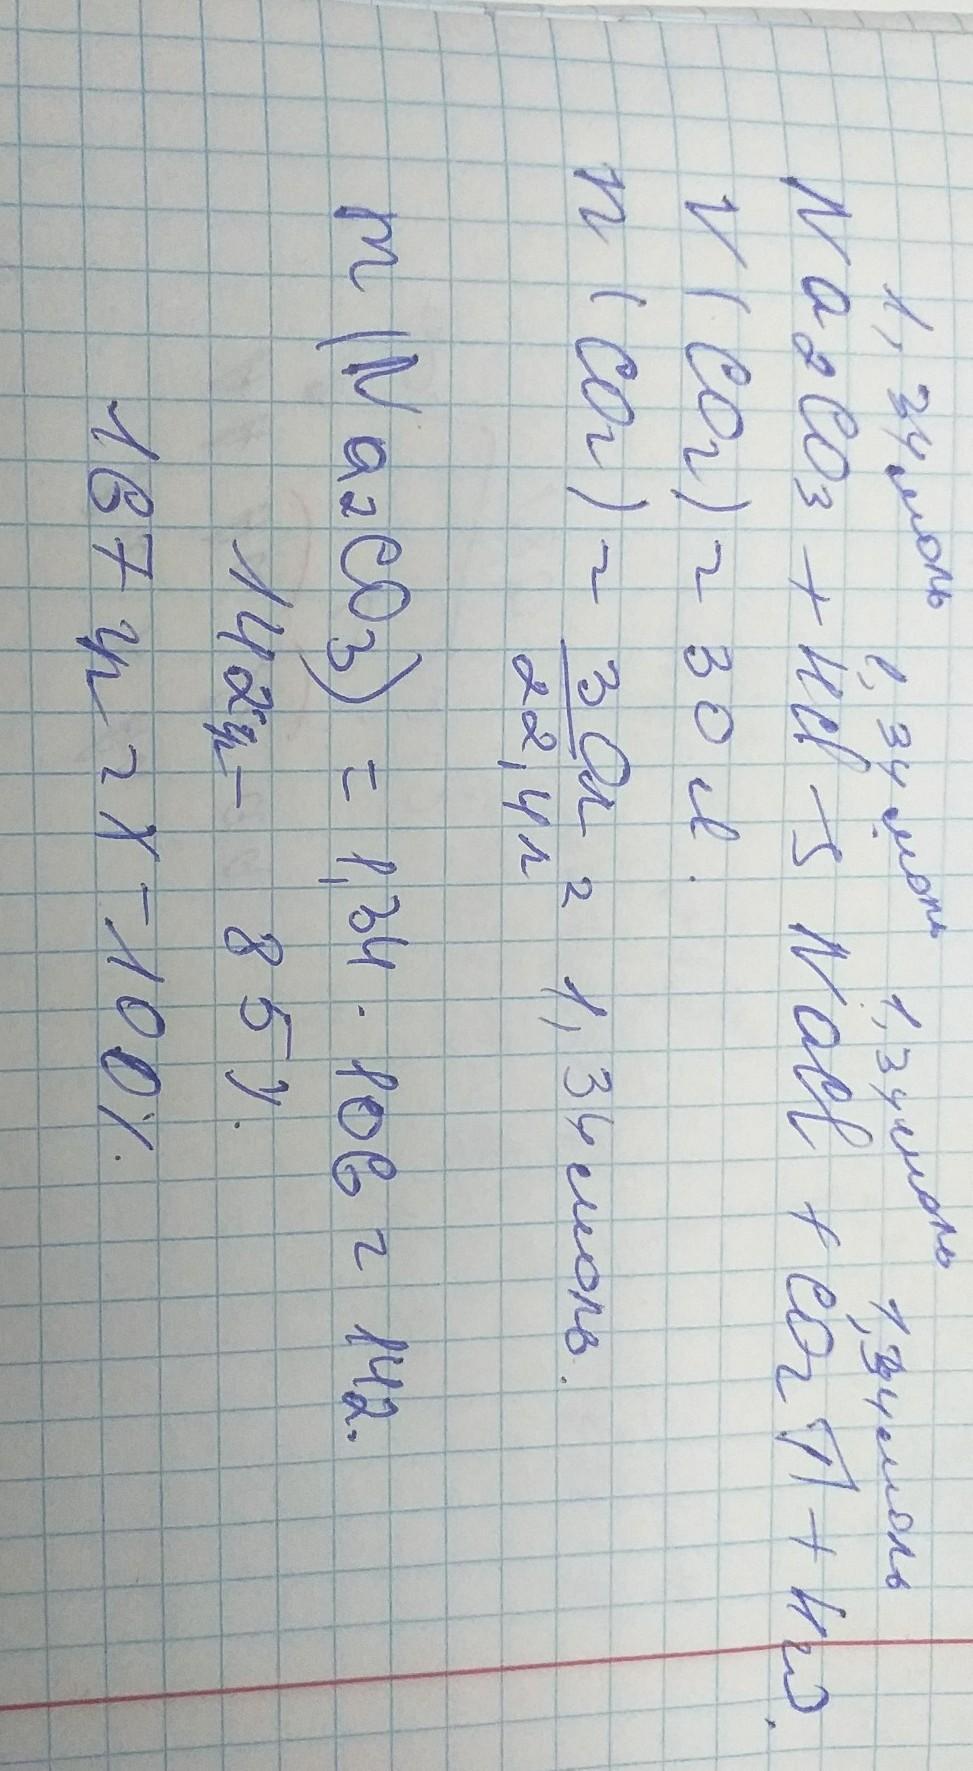 1,34 моль 1,34 моль 1,34 моль 1,34 моль
Na2CO3 + HCl → NaCl + CO2↑ + H2O.
V(CO2) = 30 л.
n(CO2) = 30л / 22,4л = 1,34 моль.
m(Na2CO3) = 1,34 · 106 = 142.
142г – 85%
167г = X – 100%.